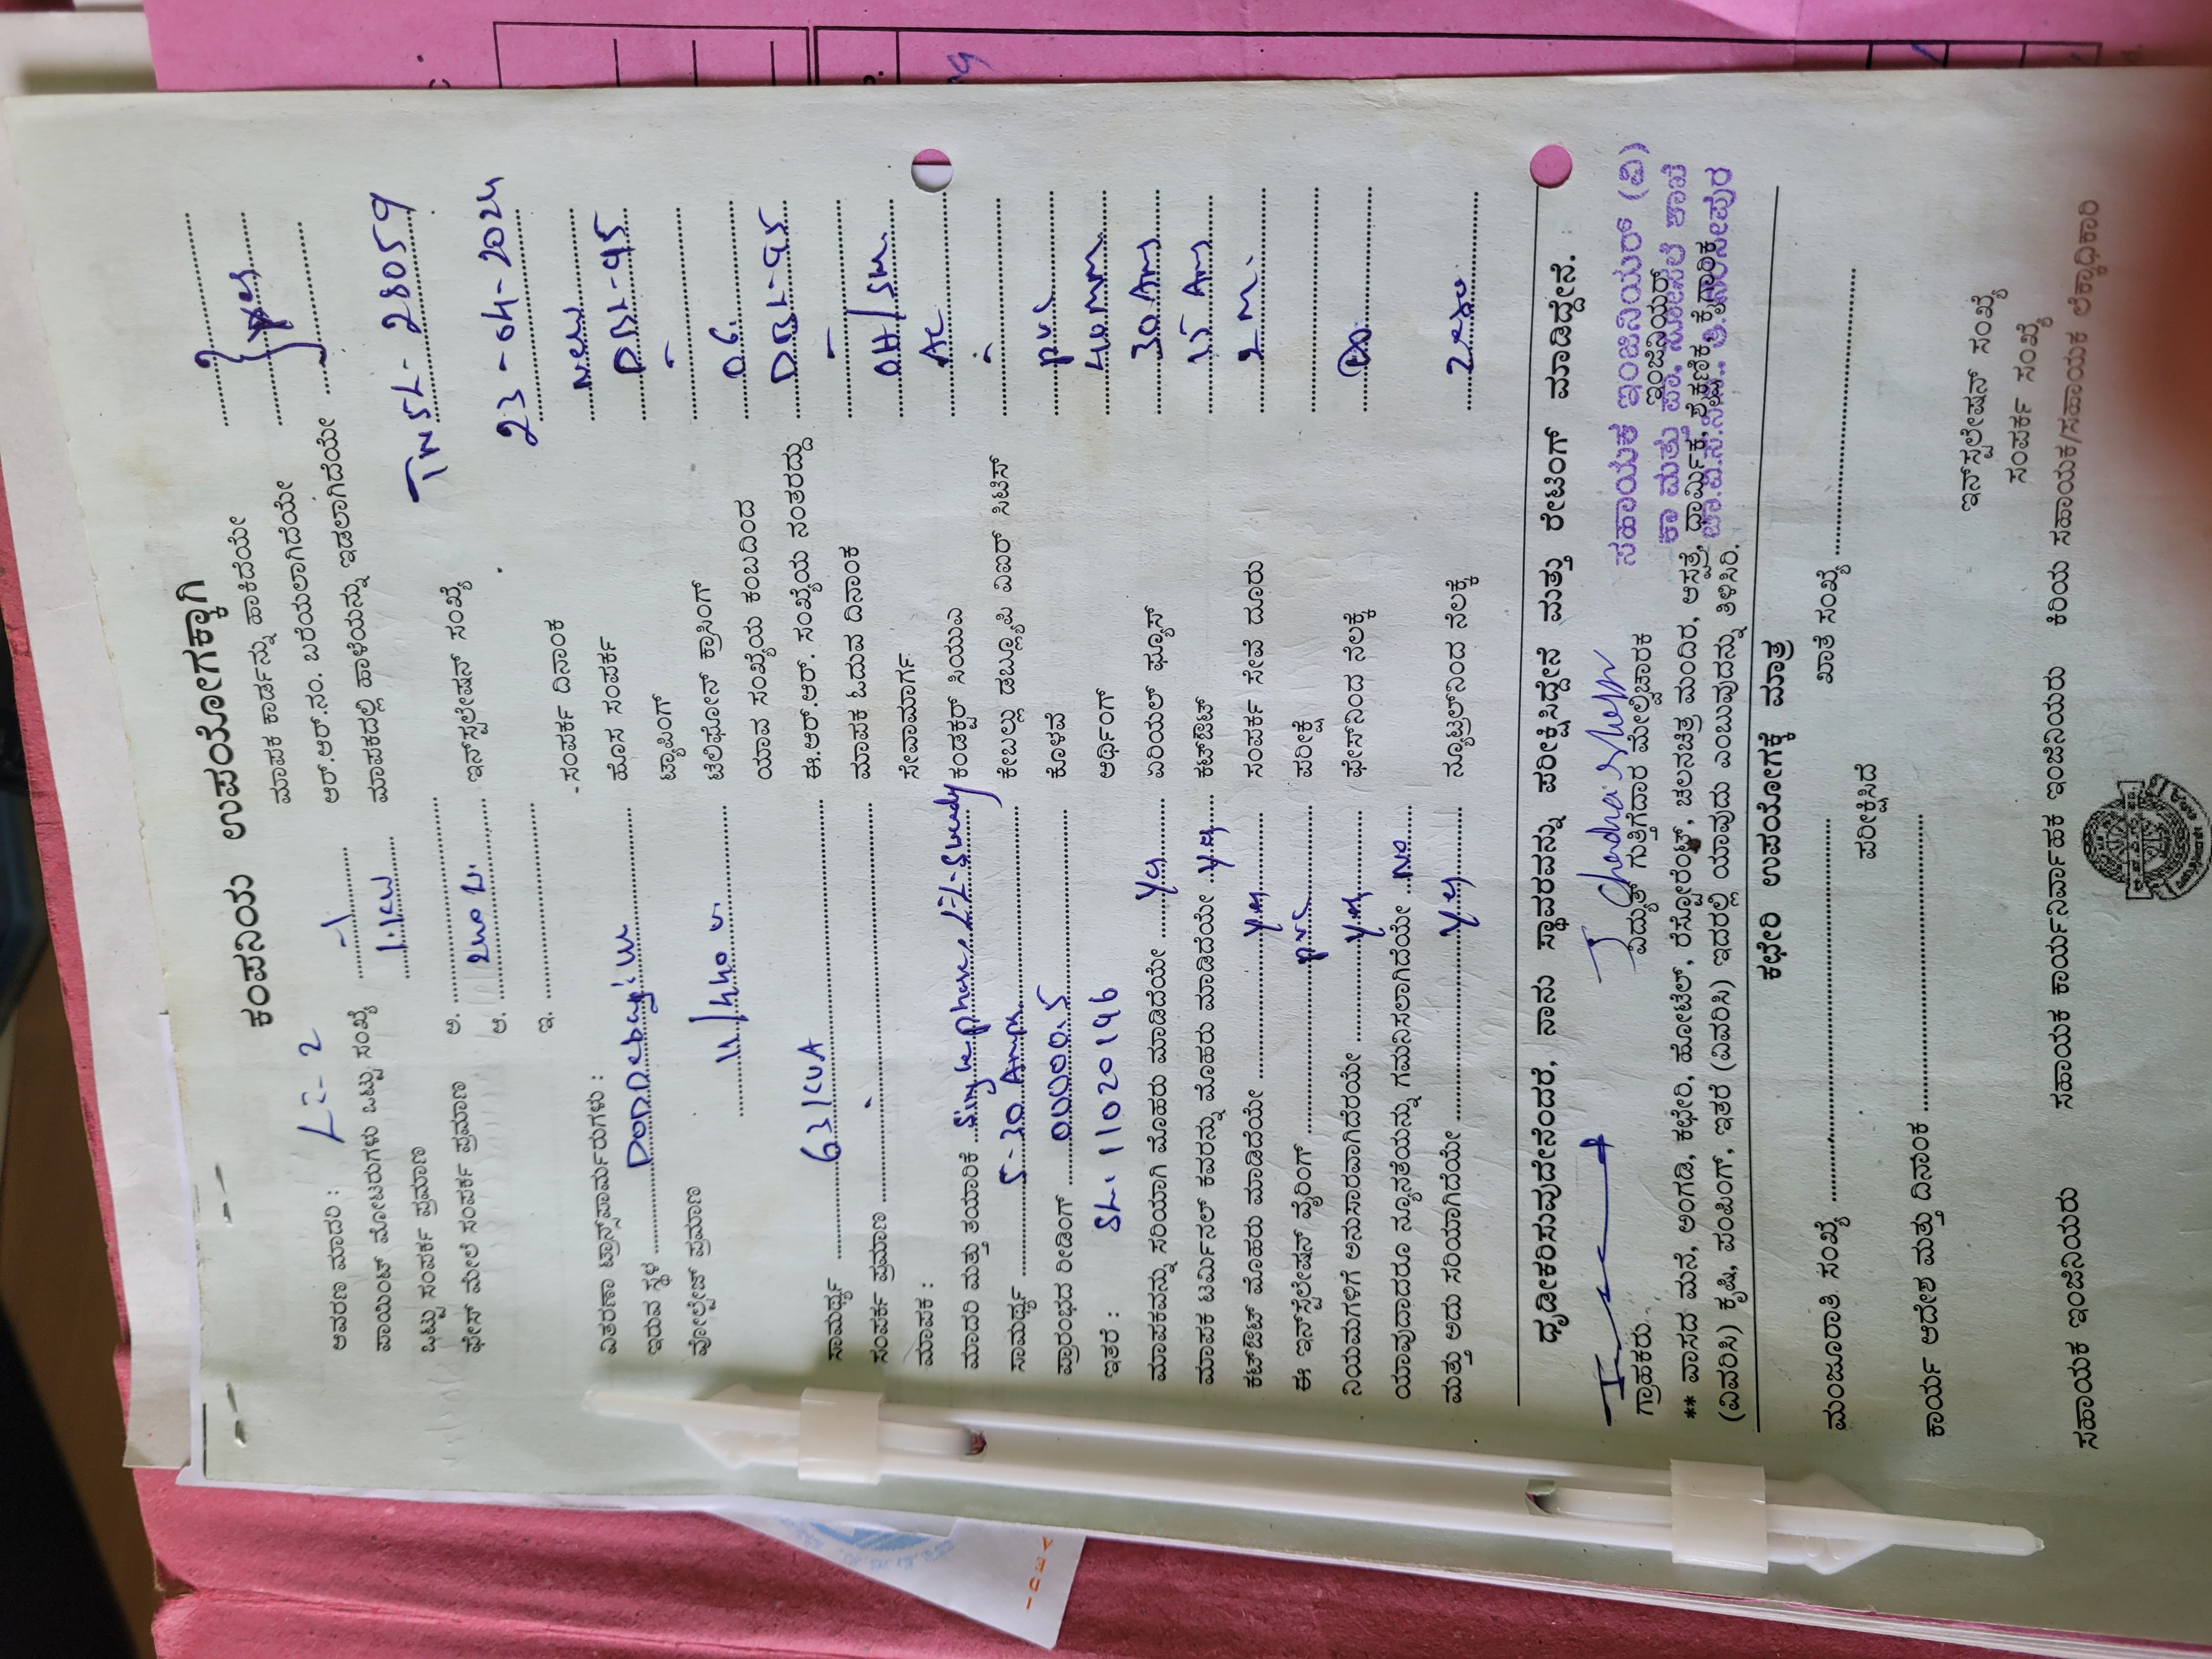 ಕಂಪನಿಯ ಉಪಯೋಗಕ್ಕಾಗಿ
ಆವರಣ ಮಾದರಿ : L-2
ಪಾಯಿಂಟ್ ಮೋಟರುಗಳು ಒಟ್ಟು ಸಂಖ್ಯೆ
ಒಟ್ಟು ಸಂಪರ್ಕ ಪ್ರಮಾಣ 1.KW
ಫೇಸ್ ಮೇಲೆ ಸಂಪರ್ಕ ಪ್ರಮಾಣ ಅ.
ಆ. 240 V.
ಇ.
ವಿತರಣಾ ಟ್ರಾನ್ಸ್‌ಫಾರ್ಮರುಗಳು :
ಇರುವ ಸ್ಥಳ
ವೋಲ್ಟೇಜ್ ಪ್ರಮಾಣ
11/440 V.
ಸಾಮರ್ಥ್ಯ 63 KVA
ಸಂಪರ್ಕ ಪ್ರಮಾಣ
ಮಾಪಕ :
ಮಾದರಿ ಮತ್ತು ತಯಾರಿಕೆ Single phase
ಸಾಮರ್ಥ್ಯ 5-30 Amps
ಪ್ರಾರಂಭದ ರೀಡಿಂಗ್ 00000.5
ಇತರೆ : SL: 11020196
ಮಾಪಕವನ್ನು ಸರಿಯಾಗಿ ಮೊಹರು ಮಾಡಿದೆಯೇ Yes
ಮಾಪಕ ಟರ್ಮಿನಲ್ ಕವರನ್ನು ಮೊಹರು ಮಾಡಿದೆಯೇ Yes
ಕಟ್‌ಔಟ್ ಮೊಹರು ಮಾಡಿದೆಯೇ Yes
ಈ ಇನ್‌ಸ್ಟಲೇಷನ್ ವೈರಿಂಗ್ PVC
ನಿಯಮಗಳಿಗೆ ಅನುಸಾರವಾಗಿದೆರೆಯೇ Yes
ಯಾವುದಾದರೂ ನ್ಯೂನತೆಯನ್ನು ಗಮನಿಸಲಾಗಿದೆಯೇ No
ಮತ್ತು ಅದು ಸರಿಯಾಗಿದೆಯೇ Yes
ಮಾಪಕ ಕಾರ್ಡನ್ನು ಹಾಕಿದೆಯೇ
ಆರ್.ಆರ್.ನಂ. ಬರೆಯಲಾಗಿದೆಯೇ Yes
ಮಾಪಕದಲ್ಲಿ ಹಾಳೆಯನ್ನು ಇಡಲಾಗಿದೆಯೇ
ಇನ್‌ಸ್ಟಲೇಷನ್ ಸಂಖ್ಯೆ TNSL-28059
ಸಂಪರ್ಕ ದಿನಾಂಕ 23-04-2024
ಹೊಸ ಸಂಪರ್ಕ New
ಟ್ಯಾಪಿಂಗ್ DBL-95
ಟೆಲಿಫೋನ್ ಕ್ರಾಸಿಂಗ್
ಯಾವ ಸಂಖ್ಯೆಯ ಕಂಬದಿಂದ 06.
ಈ.ಆರ್.ಆರ್. ಸಂಖ್ಯೆಯ ನಂತರದ್ದು DBL-95
ಮಾಪಕ ಓದುವ ದಿನಾಂಕ
ಸೇವಾಮಾರ್ಗ OH/5m.
ಕಂಡಕ್ಟರ್ ಸಿಯುಎ AC
ಕೇಬಲ್ಲು ಡಬ್ಲ್ಯೂಪಿ ಏಐಆರ್ ಸಿಟಿಸ್
ಕೊಳವೆ PVC
ಆರ್ಥಿಂಗ್ 40mm
ಏರಿಯಲ್ ಫ್ಯೂಸ್ 30 Am
ಕಟ್‌ಔಟ್ 15 Am
ಸಂಪರ್ಕ ಸೇವೆ ದೂರು 2 M.
ಪರೀಕ್ಷೆ
ಫೇಸ್‌ನಿಂದ ನೆಲಕ್ಕೆ
ನ್ಯೂಟ್ರಲ್‌ನಿಂದ ನೆಲಕ್ಕೆ Zero
ದೃಢೀಕರಿಸುವುದೇನೆಂದರೆ, ನಾನು ಸ್ಥಾವರವನ್ನು ಪರೀಕ್ಷಿಸಿದ್ದೇನೆ ಮತ್ತು ರೇಟಿಂಗ್ ಮಾಡಿದ್ದೇನೆ.
ಗ್ರಾಹಕರು.
ವಿದ್ಯುತ್ ಗುತ್ತಿಗೆದಾರ ಮೇಲ್ವಿಚಾರಕ
ಇಂಜಿನಿಯರ್
ಸಹಾಯಕ ಇಂಜಿನಿಯರ್ (ವಿ)
ಕಾ ಮತ್ತು ಪಾ. ಸೋಸಲೆ ಶಾಖೆ
** ವಾಸದ ಮನೆ, ಅಂಗಡಿ, ಕಛೇರಿ, ಹೋಟೆಲ್, ರೆಸ್ಟೋರೆಂಟ್, ಚಲನಚಿತ್ರ ಮಂದಿರ, ಆಸ್ಪತ್ರೆ, ಧಾರ್ಮಿಕ, ಶೈಕ್ಷಣಿಕ, ಕೈಗಾರಿಕೆ
(ವಿವರಿಸಿ) ಕೃಷಿ, ಪಂಪಿಂಗ್, ಇತರೆ (ವಿವರಿಸಿ) ಇದರಲ್ಲಿ ಯಾವುದು ಎಂಬುವುದನ್ನು ತಿಳಿಸಿರಿ.
ಕಛೇರಿ ಉಪಯೋಗಕ್ಕೆ ಮಾತ್ರ
ಮಂಜೂರಾತಿ ಸಂಖ್ಯೆ ಖಾತೆ ಸಂಖ್ಯೆ
ಪರೀಕ್ಷಿಸಿದೆ
ಕಾರ್ಯ ಆದೇಶ ಮತ್ತು ದಿನಾಂಕ
ಇನ್‌ಸ್ಟಲೇಷನ್ ಸಂಖ್ಯೆ
ಸಂಪರ್ಕ ಸಂಖ್ಯೆ
ಸಹಾಯಕ ಇಂಜಿನಿಯರು ಸಹಾಯಕ ಕಾರ್ಯನಿರ್ವಾಹಕ ಇಂಜಿನಿಯರು ಕಿರಿಯ ಸಹಾಯಕ/ಸಹಾಯಕ ಲೆಕ್ಕಾಧಿಕಾರಿ